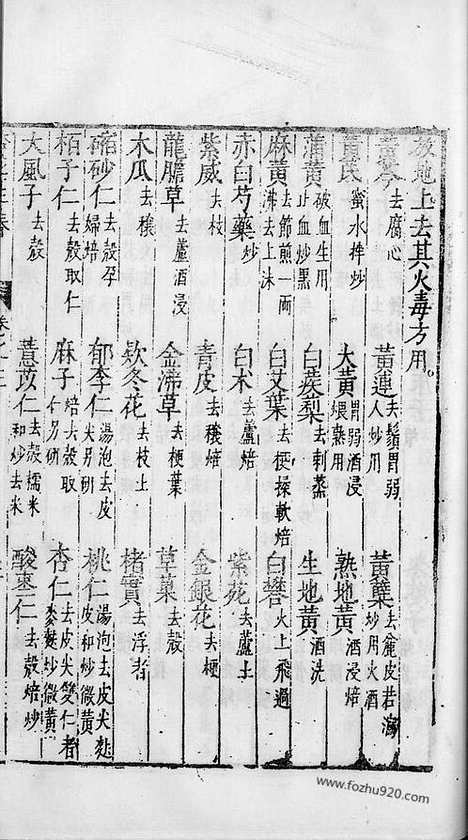 放地上去其火毒方用
黃芩去腐心 黃連去鬚胃弱人炒用 黃蘗去麄皮若瀉炒用火酒
黃芪蜜水拌炒 大黃胃弱酒浸煨熟用 熟地黃酒浸焙
蒲黃破血生用止血炒黑 白蒺梨去刺蒸 生地黃酒洗
麻黃去節煎一兩沸去上沫 白艾葉去梗揉軟焙 白礬火上飛過
赤白芍藥炒 白朮去蘆焙 紫菀去蘆土
紫威去枝 青皮去穰焙 金銀花去梗
龍膽草去蘆酒浸 金沸草去梗葉 草菓去殼
木瓜去穰 欵冬花去枝土 楮實去浮者
縮砂仁去殼孕婦焙 郁李仁湯泡去皮尖另研 桃仁湯泡去皮尖麩皮和炒微黃
栢子仁去殼取仁 麻子焙去殼取仁另研 杏仁去皮尖雙仁者麥麩炒微黃
大風子去殼 薏苡仁去殼糯米和炒去米 酸棗仁去殼焙炒
www.fozhu920.com